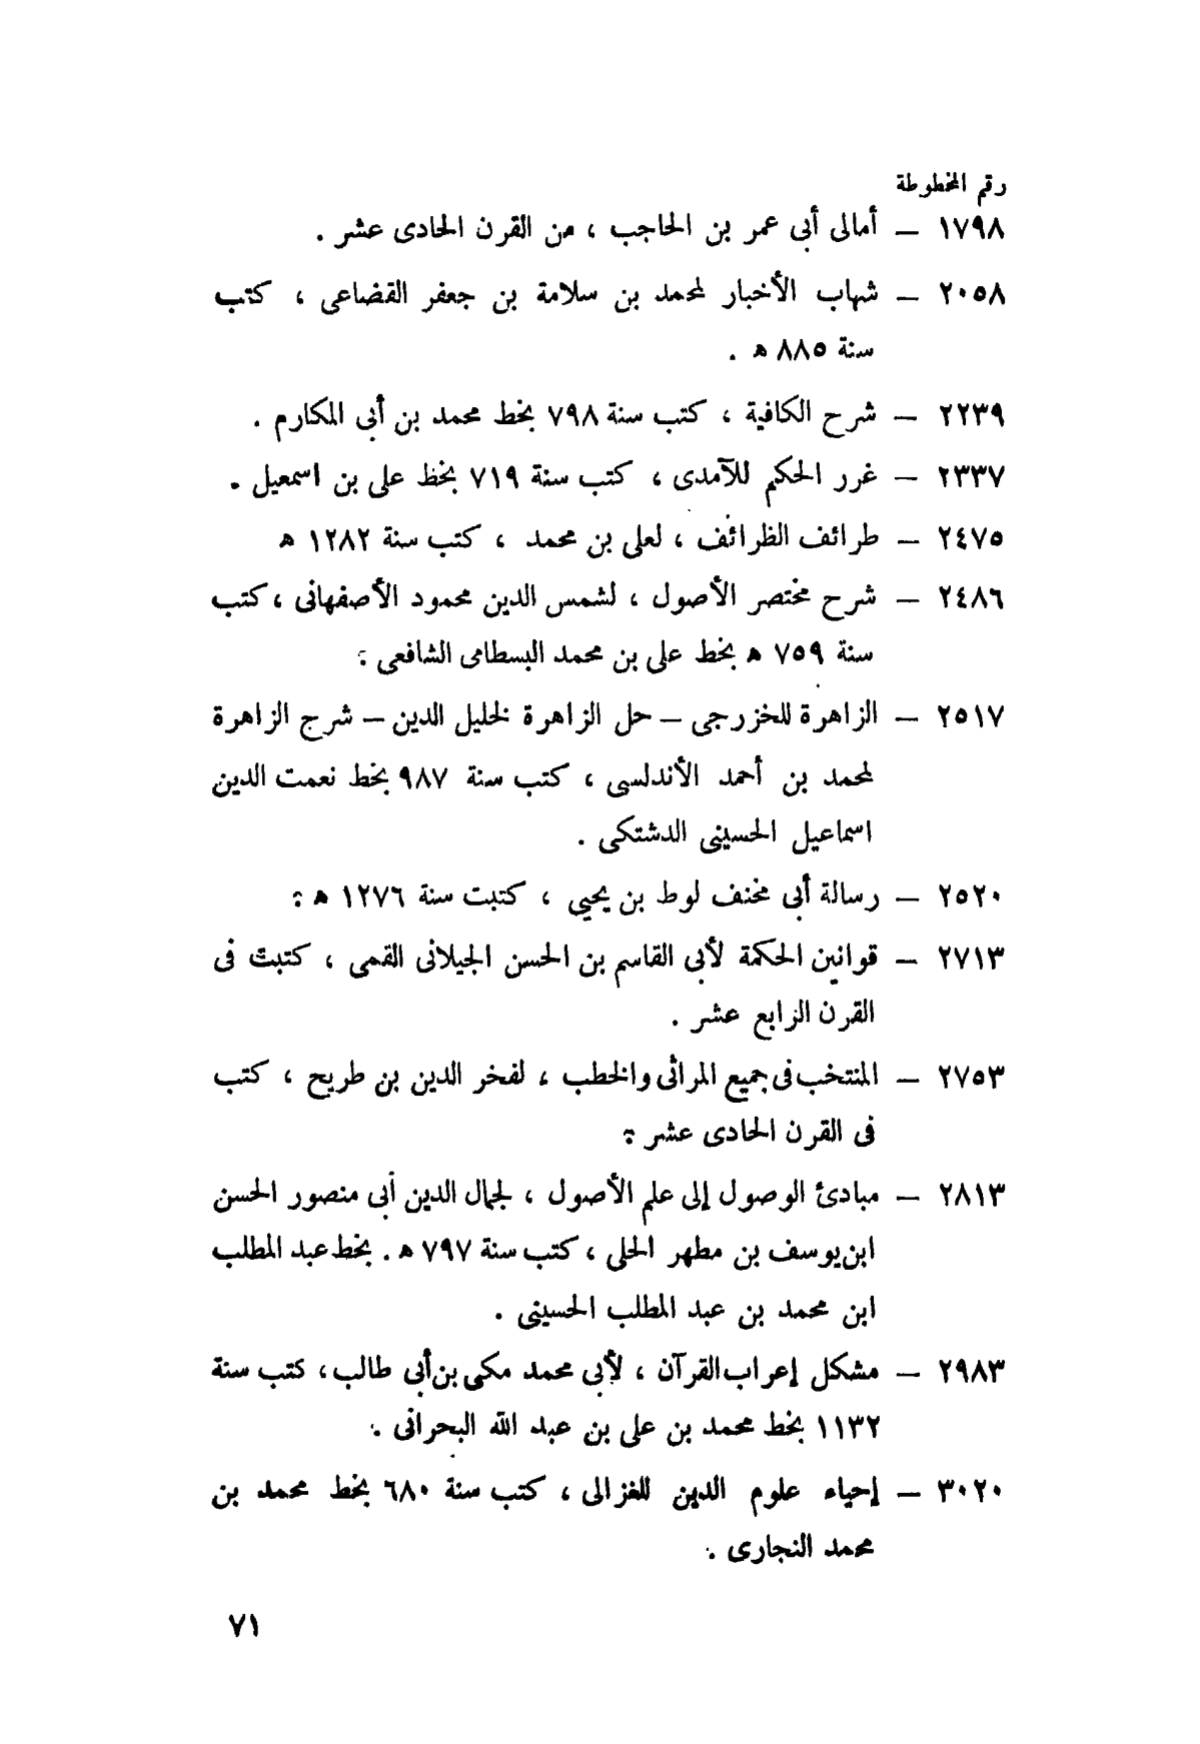 رقم المخطوطة
١٧٩٨ – أمالى أبى عمر بن الحاجب ، من القرن الحادى عشر .
٢٠٥٨ – شهاب الأخبار لمحمد بن سلامة بن جعفر القضاعى ، كتب
سنة ٨٨٥ ه .
٢٢٣٩ – شرح الكافية ، كتب سنة ٧٩٨ بخط محمد بن أبى المكارم .
٢٣٣٧ – غرر الحكم للآمدى ، كتب سنة ٧١٩ بخظ على بن اسمعيل .
٢٤٧٥ – طرائف الظرائف ، لعلى بن محمد ، كتب سنة ١٢٨٢ ه
٢٤٨٦ – شرح مختصر الأصول ، لشمس الدين محمود الأصفهانى ، كتب
سنة ٧٥٩ ه بخط على بن محمد البسطامى الشافعى .
٢٥١٧ – الزاهرة للخزرجى – حل الزاهرة لخليل الدين – شرج الزاهرة
لمحمد بن أحمد الأندلسى ، كتب سنة ٩٨٧ بخط نعمت الدين
اسماعيل الحسينى الدشتكى .
٢٥٢٠ – رسالة أبى مخنف لوط بن يحيى ، كتبت سنة ١٢٧٦ ه .
٢٧١٣ – قوانين الحكمة لأبى القاسم بن الحسن الجيلانى القمى ، كتبت فى
القرن الرابع عشر .
٢٧٥٣ – المنتخب فى جميع المراثى والخطب ، لفخر الدين بن طريح ، كتب
فى القرن الحادى عشر .
٢٨١٣ – مبادئ الوصول إلى علم الأصول ، لجمال الدين أبى منصور الحسن
ابن يوسف بن مطهر الحلى ، كتب سنة ٧٩٧ ه . بخط عبد المطلب
ابن محمد بن عبد المطلب الحسينى .
٢٩٨٣ – مشكل إعراب القرآن ، لأبى محمد مكى بن أبى طالب ، كتب سنة
١١٣٢ بخط محمد بن على بن عبد الله البحرانى .
٣٠٢٠ – إحياء علوم الدين للغزالى ، كتب سنة ٦٨٠ بخط محمد بن
محمد النجارى .
٧١